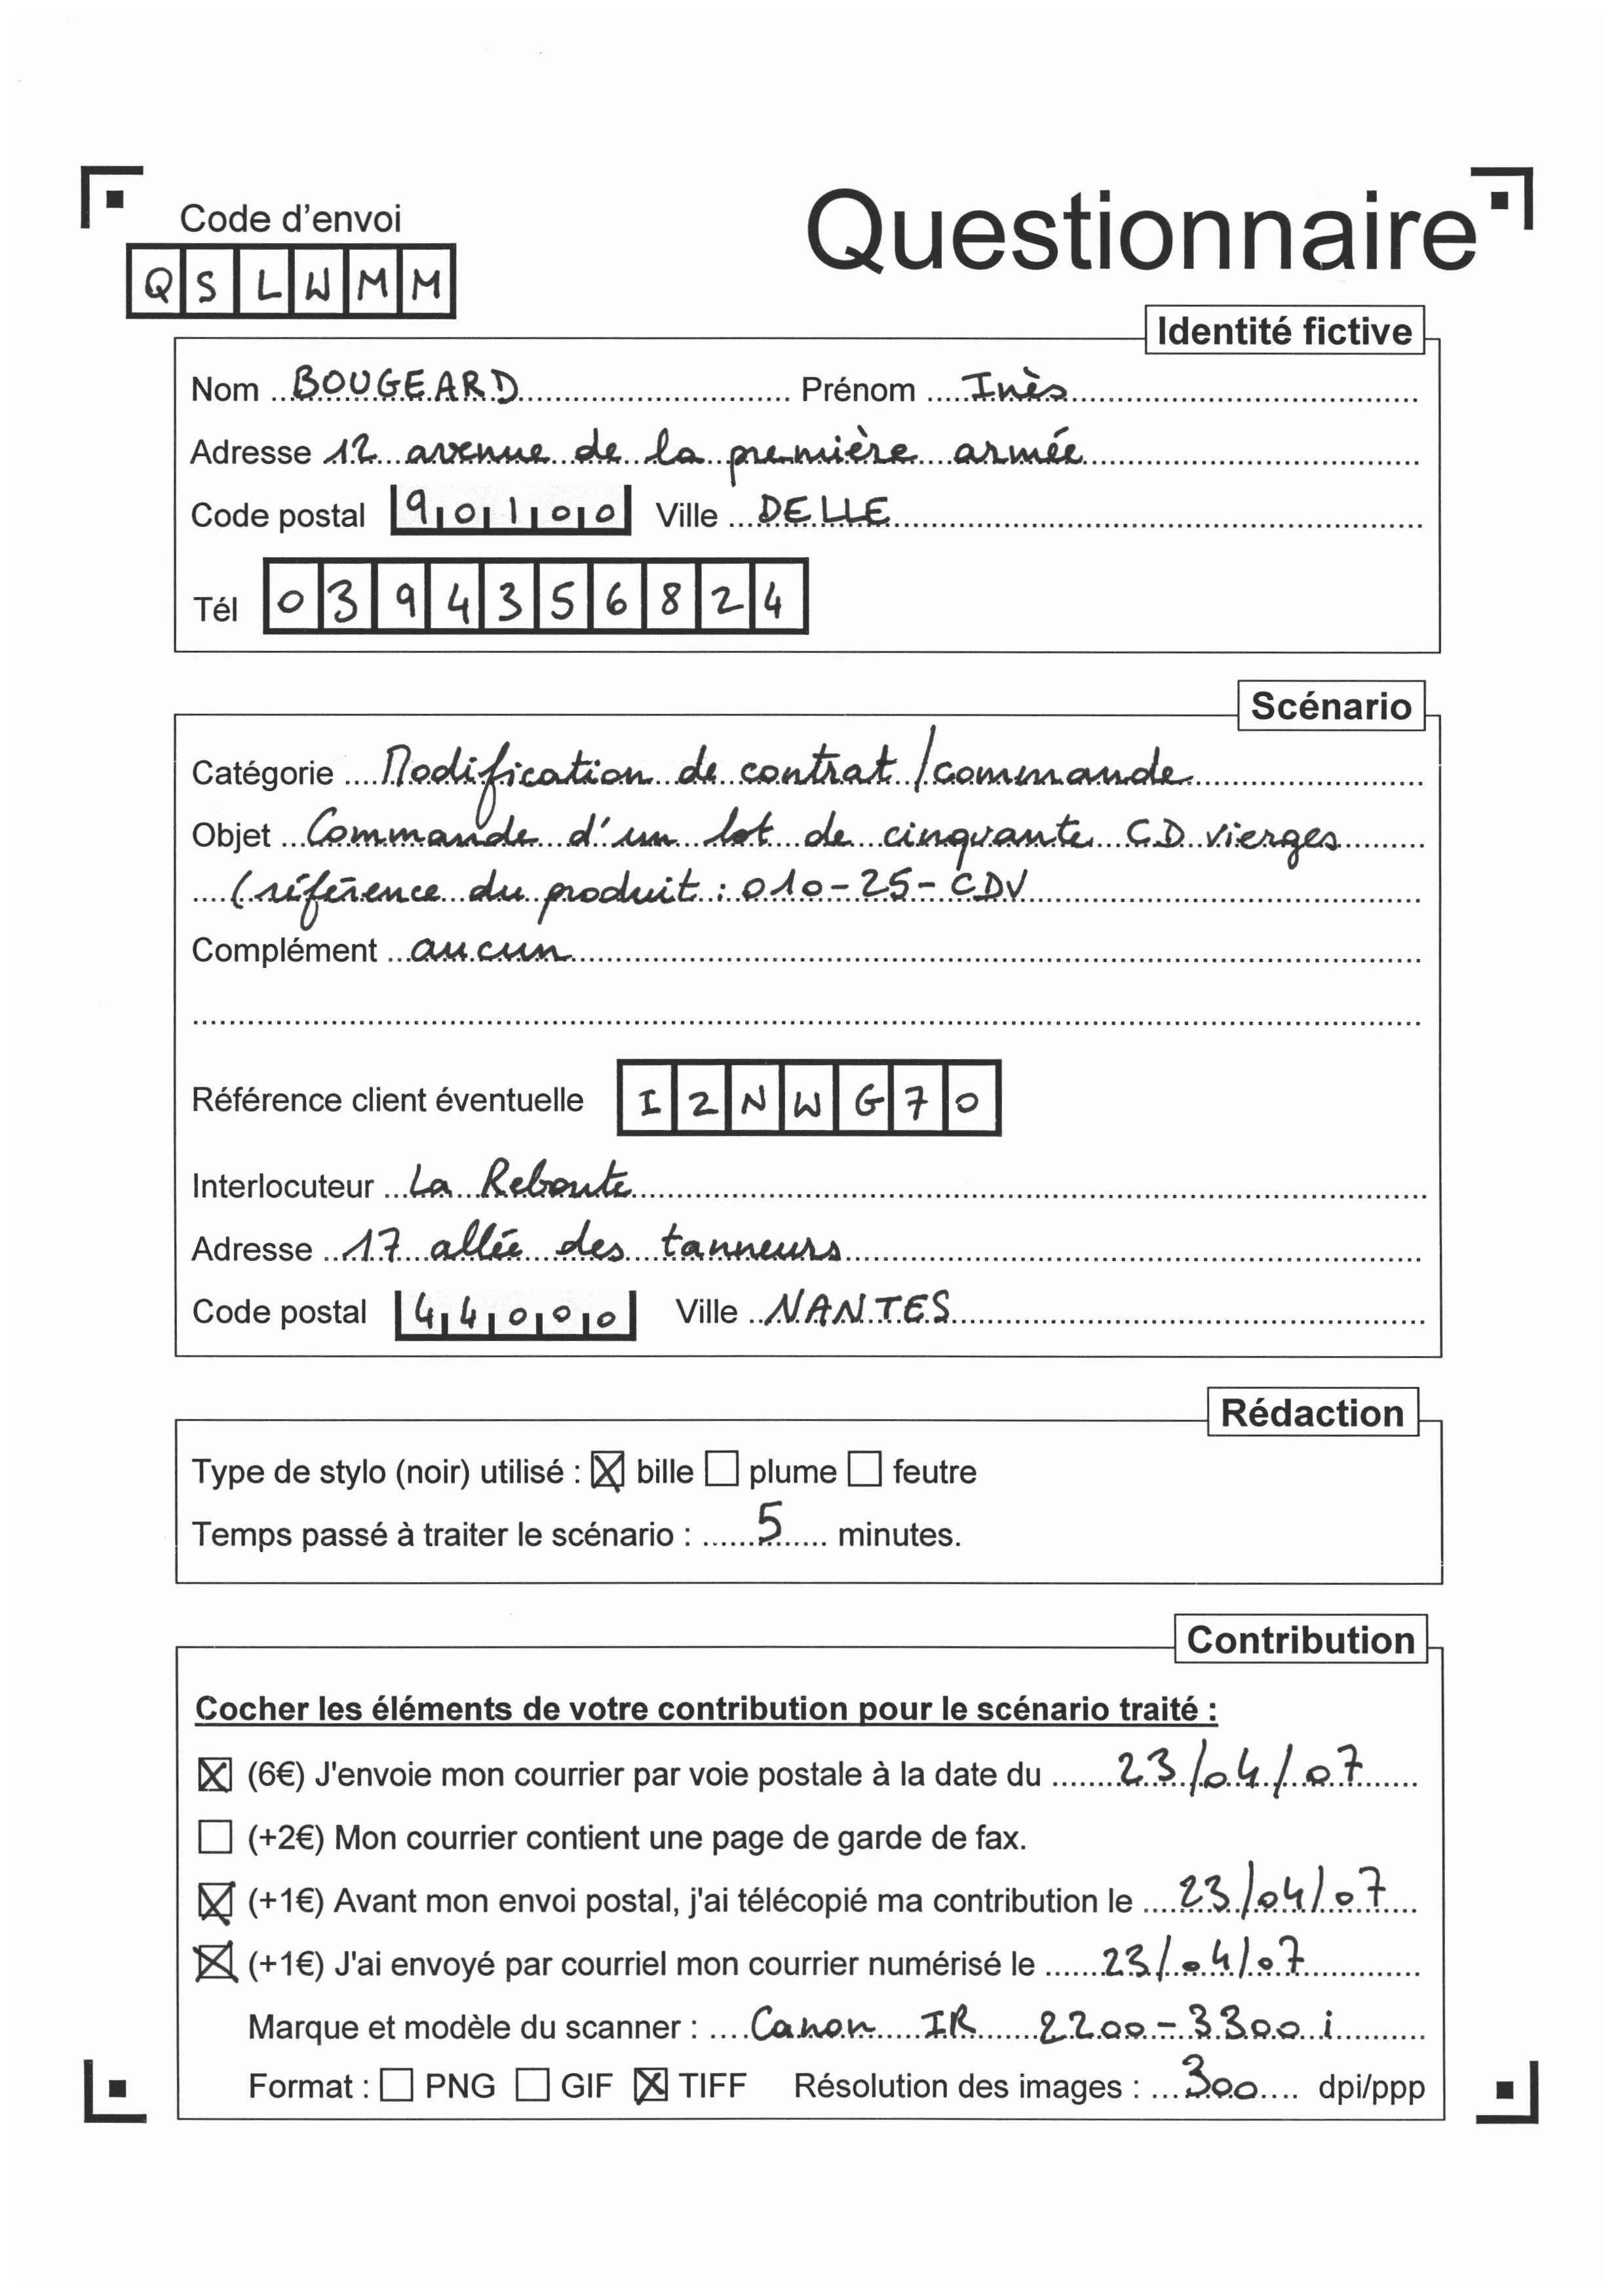 Code d'envoi
Questionnaire
QSLWMM
Identité fictive
Nom BOUGEARD Prénom Inès
Adresse 12 avenue de la première armée
Code postal 90100 Ville DELLE
Tél 0394356824
Scénario
Catégorie Modification de contrat / commande
Objet Commande d'un lot de cinquante CD vierges
(référence du produit : 010-25-CDV
Complément aucun
Référence client éventuelle I2NWG70
Interlocuteur La Reboute
Adresse 17 allée des tanneurs
Code postal 44000 Ville NANTES
Rédaction
Type de stylo (noir) utilisé : ☒ bille ☐ plume ☐ feutre
Temps passé à traiter le scénario : 5 minutes.
Contribution
Cocher les éléments de votre contribution pour le scénario traité :
☒ (6€) J'envoie mon courrier par voie postale à la date du 23/04/07
☐ (+2€) Mon courrier contient une page de garde de fax.
☒ (+1€) Avant mon envoi postal, j'ai télécopié ma contribution le 23/04/07
☒ (+1€) J'ai envoyé par courriel mon courrier numérisé le 23/04/07
Marque et modèle du scanner : Canon IR 2200-3300 i
Format : ☐ PNG ☐ GIF ☒ TIFF Résolution des images : 300 dpi/ppp